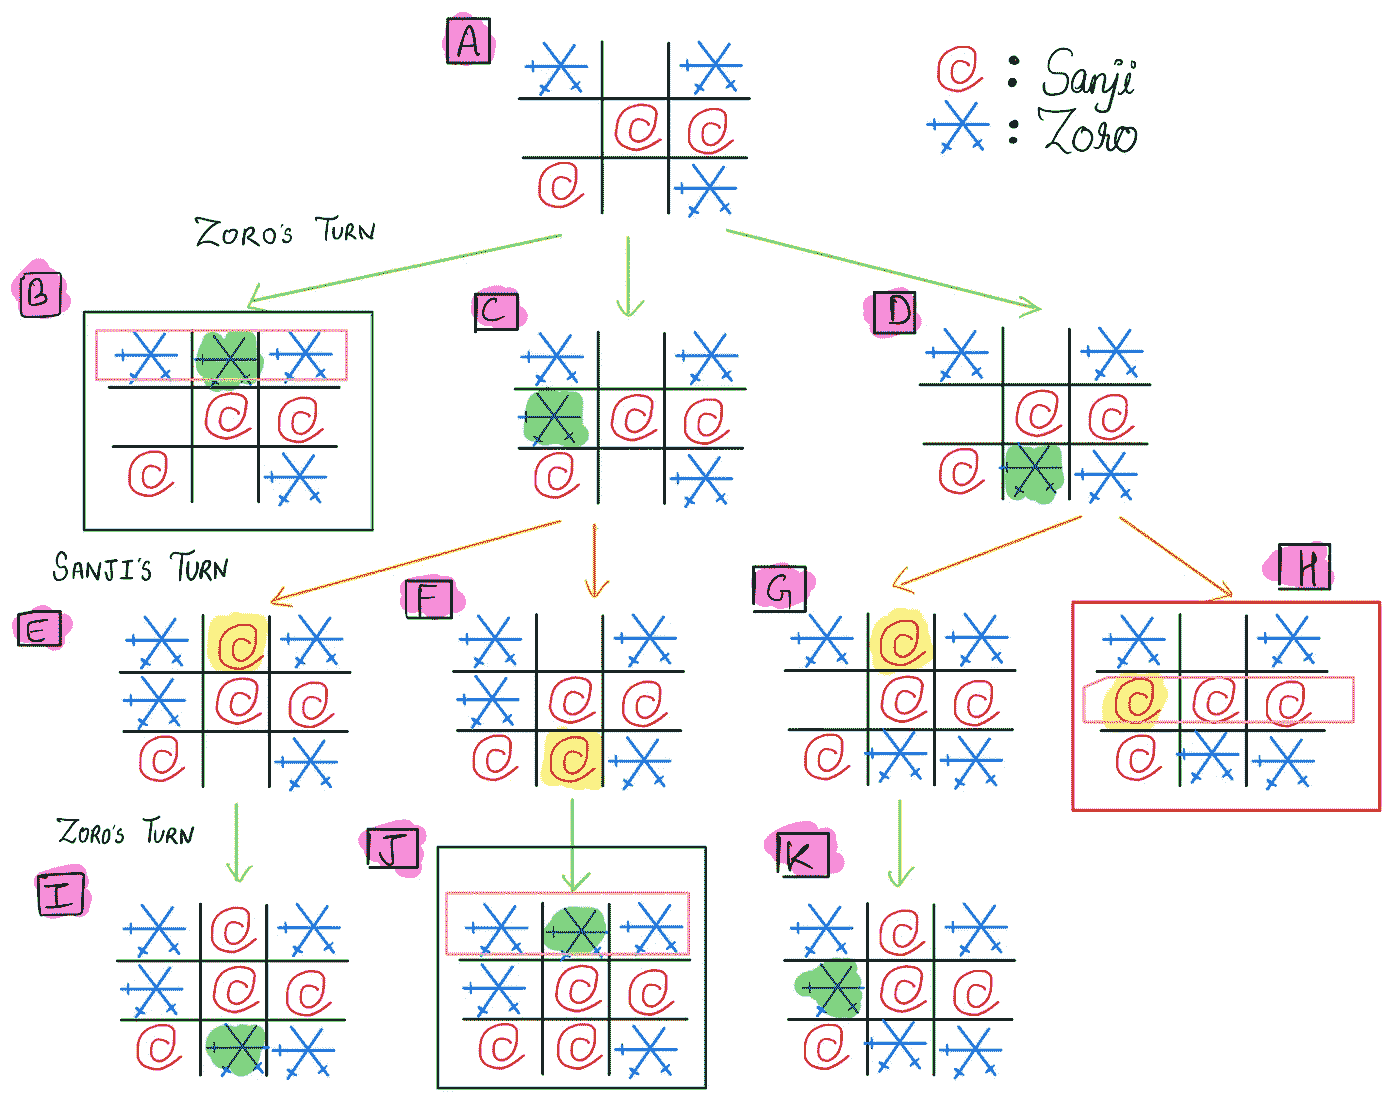 A
: Sanji
: Zoro
ZORO'S TURN
B
C
D
SANJI'S TURN
E
F
G
H
ZORO'S TURN
I
J
K